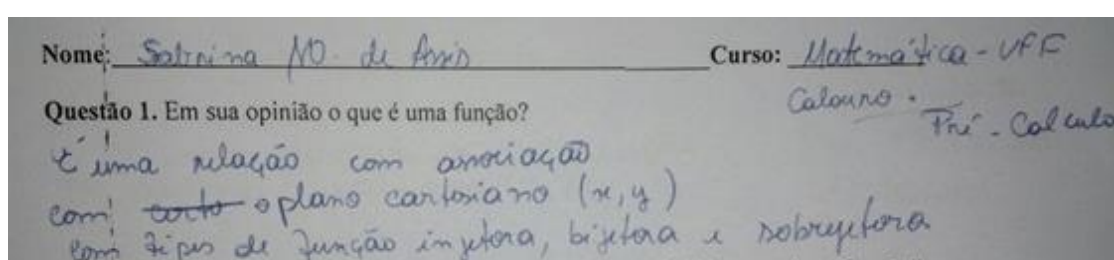 Nome: Sabrina NO. de Assis Curso: Matemática - UFF
Calouro. Pré-Calculo
Questão 1. Em sua opinião o que é uma função?
É uma relação com associação
com certo o plano cartesiano (x, y)
com tipos de função injetora, bijetora e sobrejetora